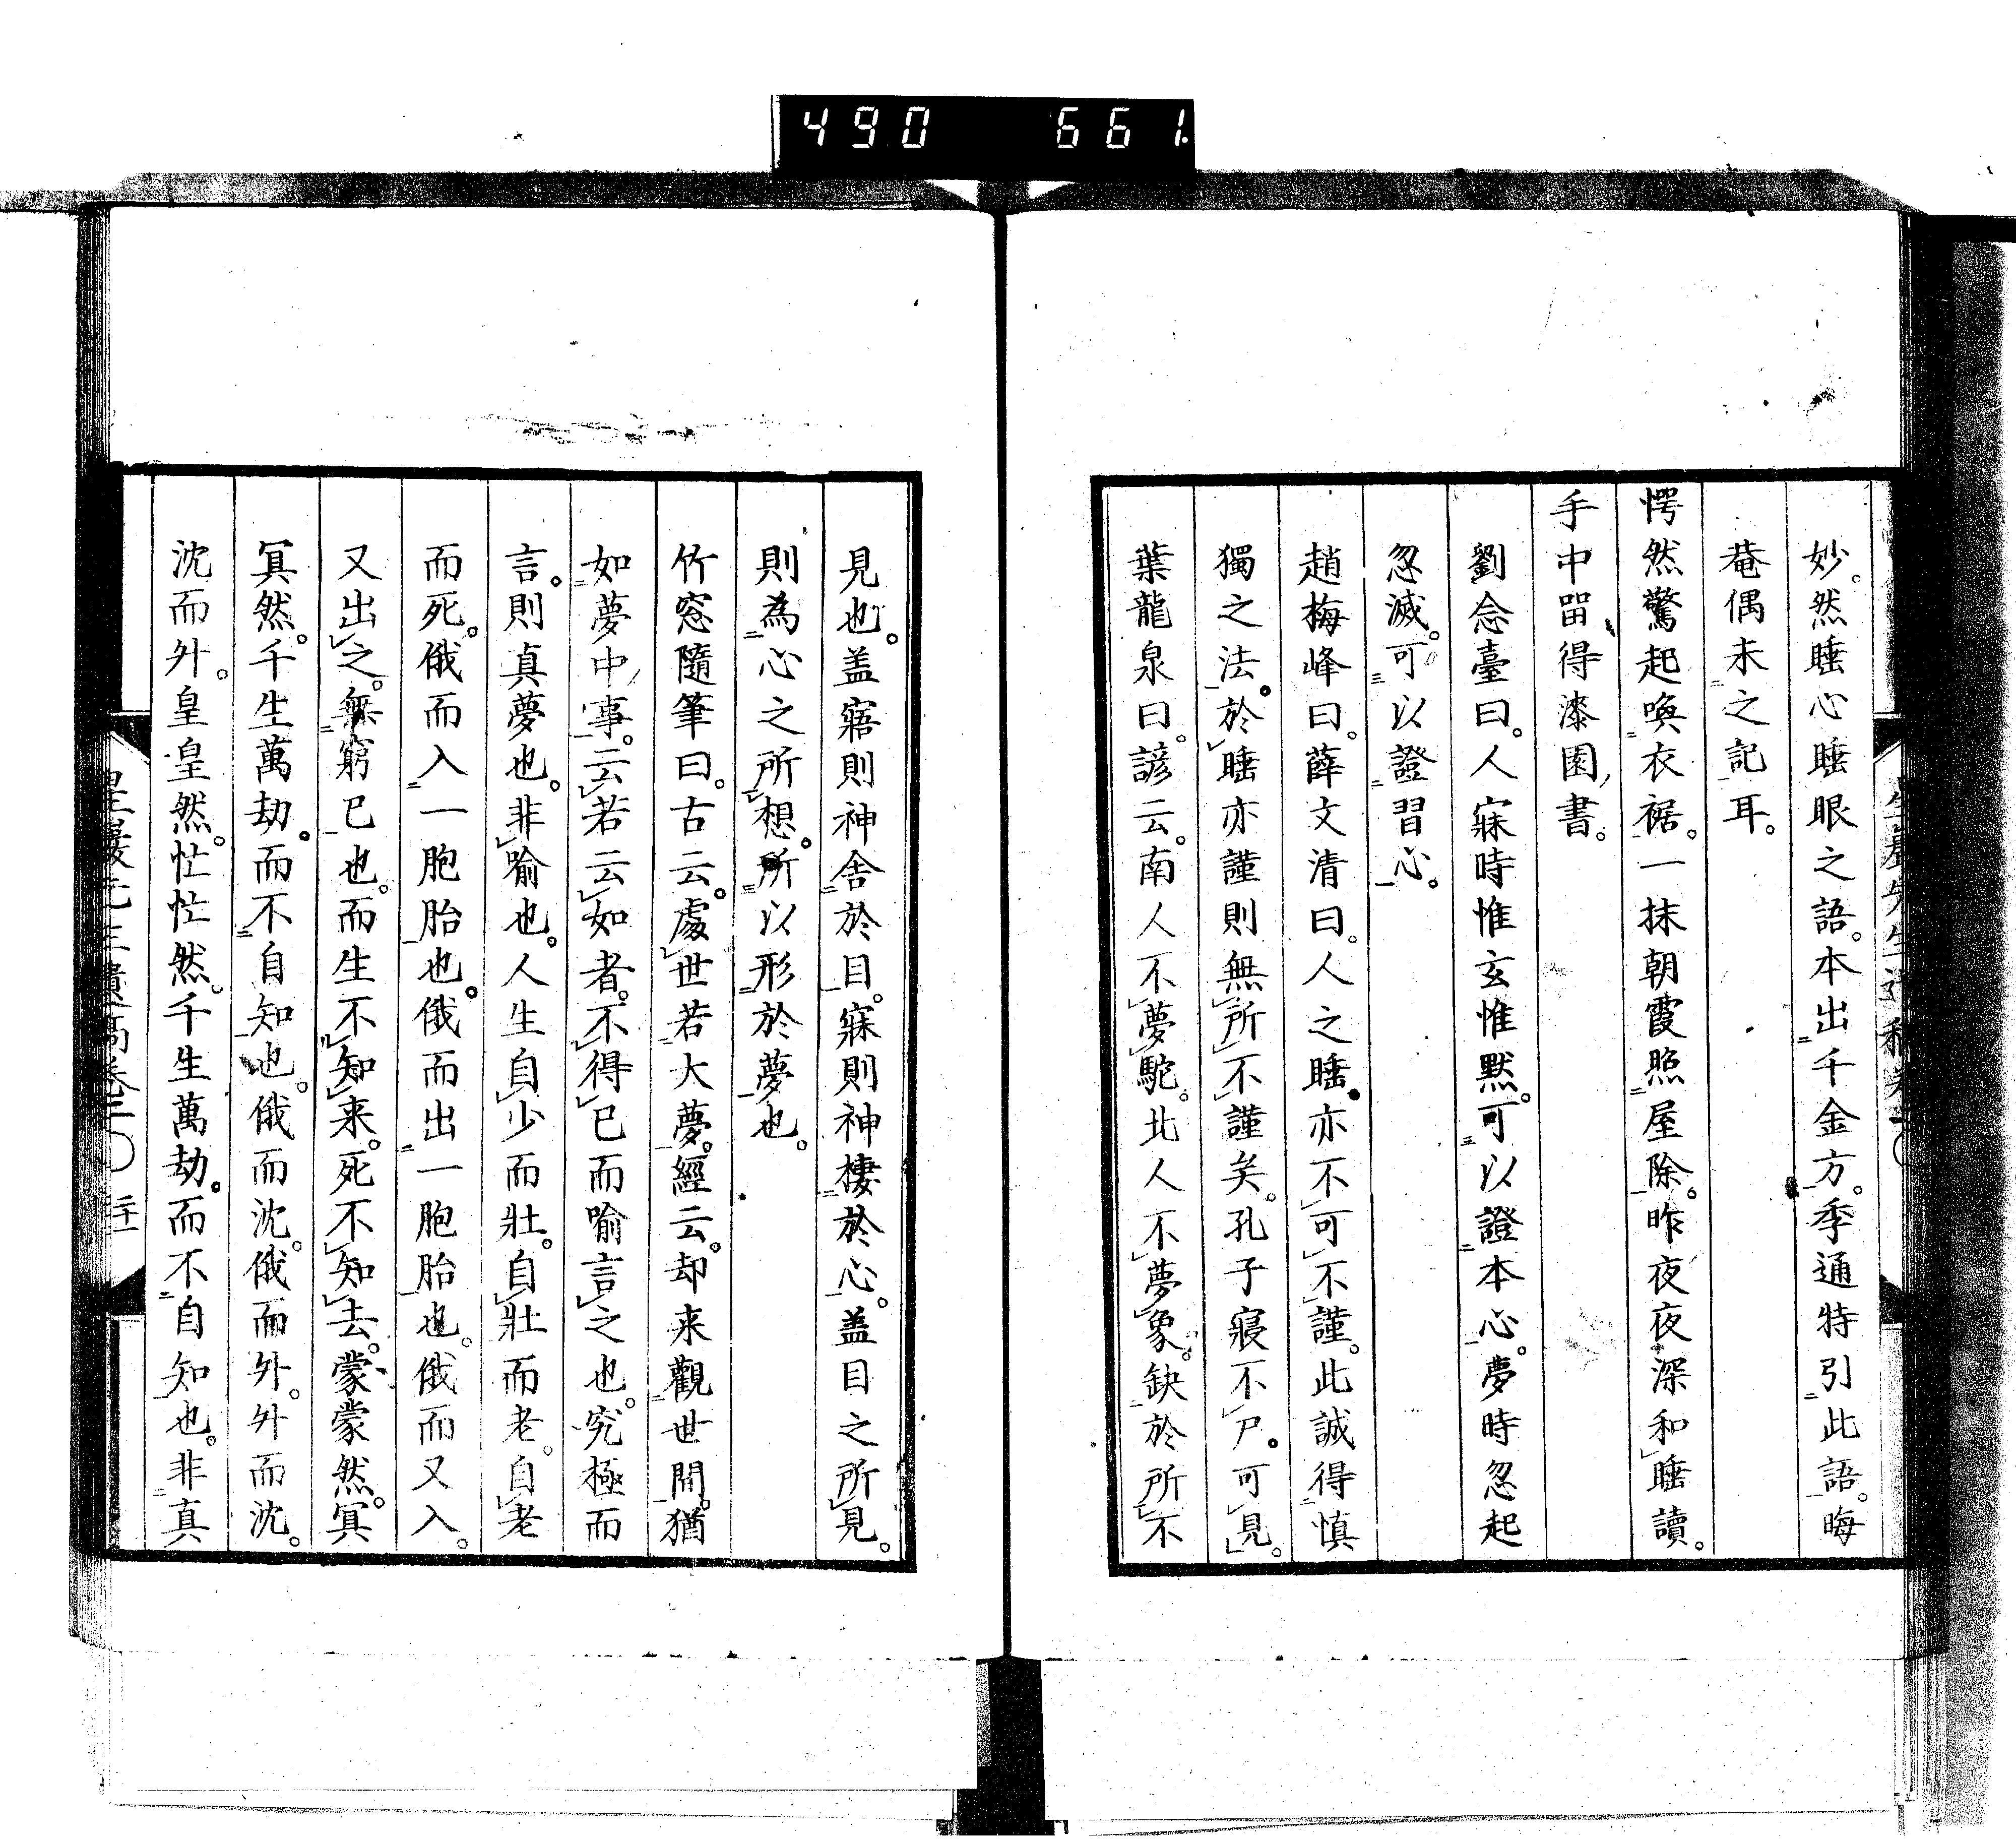 490 661
妙。然睡心睡眼之語。本出千金方。季通特引此語。晦
菴偶未之記耳。
愕然驚起喚衣裾。一抹朝霞照屋除。昨夜夜深和睡讀。
手中留得漆園書。
劉念臺曰。人寐時惟玄惟默。可以證本心。夢時忽起
忽滅。可以證習心。
趙梅峰曰。薛文清曰。人之睡。亦不可不謹。此誠得慎
獨之法。於睡亦謹則無所不謹矣。孔子寢不尸。可見。
葉龍泉曰。諺云。南人不夢駝。北人不夢象。缺於所不
見也。盖寤則神舍於目。寐則神棲於心。盖目之所見。
則為心之所想。所以形於夢也。
竹窓隨筆曰。古云。處世若大夢。經云。却来觀世間。猶
如夢中事。云若云如者。不得已而喻言之也。究極而
言。則真夢也。非喻也。人生自少而壯。自壯而老。自老
而死。俄而入一胞胎也。俄而出一胞胎也。俄而又入。
又出之。無窮已也。而生不知来。死不知去。蒙蒙然。冥
冥然。千生萬劫。而不自知也。俄而沈。俄而外。外而沈。
沈而外。皇皇然。忙忙然。千生萬劫。而不自知也。非真